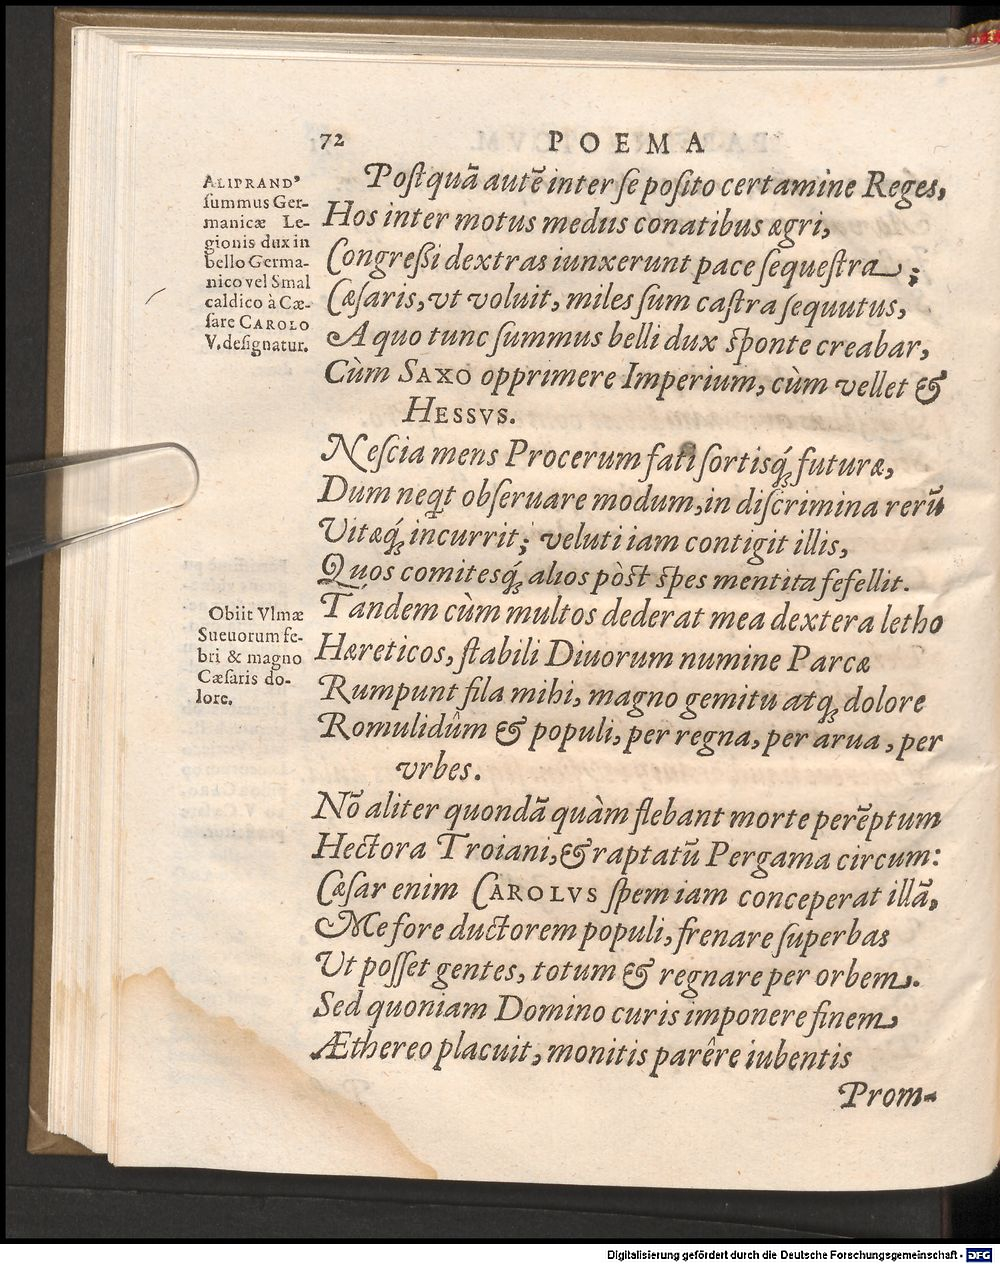 72 POEMA
ALIPRAND'
summus Ger-
manicæ Le-
gionis dux in
bello Germa-
nico vel Smal
caldico à Cæ-
sare CAROLO
V. designatur.
Postquã autẽ inter se posito certamine Reges,
Hos inter motus medius conatibus ægri,
Congressi dextras iunxerunt pace sequestra;
Cæsaris, vt voluit, miles sum castra sequutus,
A quo tunc summus belli dux sponte creabar,
Cùm SAXO opprimere Imperium, cùm vellet &
HESSVS.
Nescia mens Procerum fati sortisq́; futuræ,
Dum neqt obseruare modum, in discrimina rerũ
Vitæq́; incurrit; veluti iam contigit illis,
Quos comitesq́; alios pòst spes mentita fefellit.
Obiit Vlmæ
Sueuorum fe-
bri & magno
Cæsaris do-
lore.
Tandem cùm multos dederat mea dextera letho
Hæreticos, stabili Diuorum numine Parcæ
Rumpunt fila mihi, magno gemitu atq; dolore
Romulidûm & populi, per regna, per arua, per
vrbes.
Nõ aliter quondã quàm flebant morte perẽptum
Hectora Troiani, & raptatũ Pergama circum:
Cæsar enim CAROLVS spem iam conceperat illã,
Me fore ductorem populi, frenare superbas
Vt posset gentes, totum & regnare per orbem.
Sed quoniam Domino curis imponere finem
Æthereo placuit, monitis parêre iubentis
Prom-
Digitalisierung gefördert durch die Deutsche Forschungsgemeinschaft - DFG